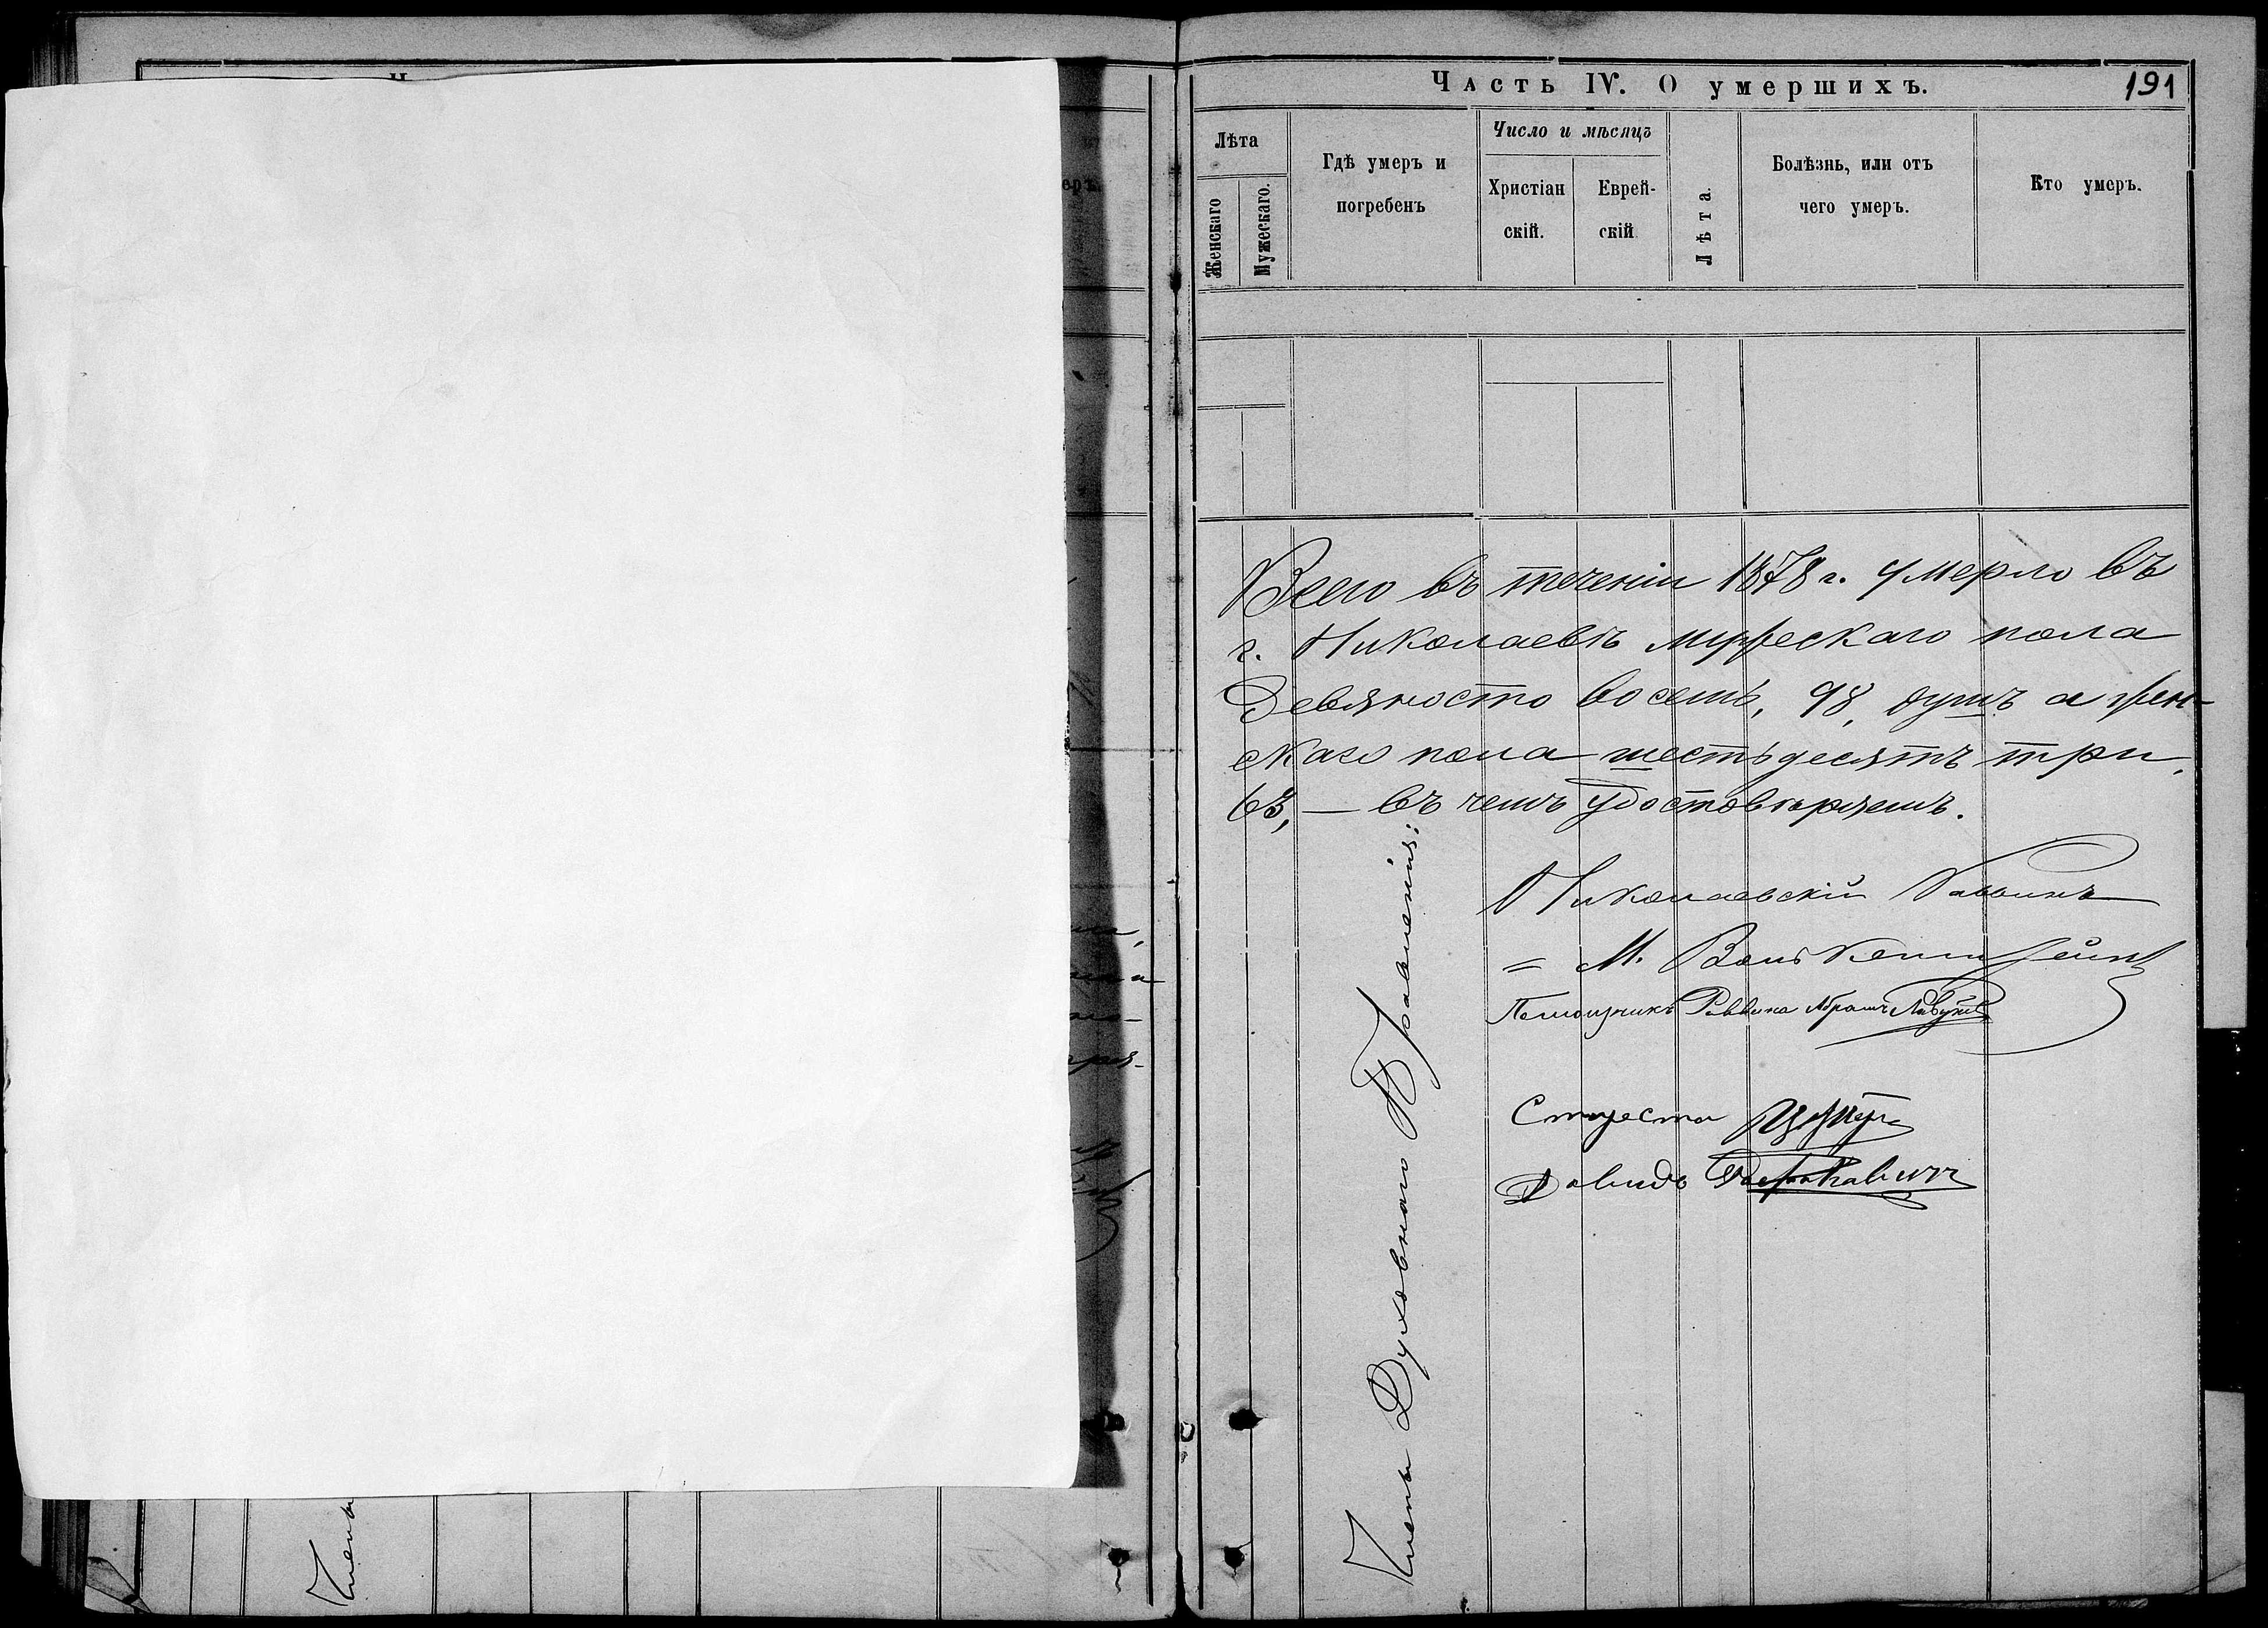 Часть IV. О умершихъ.
191
Лѣта
Женскаго
Мужескаго.
Гдѣ умеръ и
погребенъ
Число и мѣсяцъ
Христіан
скій.
Еврей-
скій
Лѣта.
Болѣзнь, или отъ
чего умеръ.
Кто умеръ.
Всего въ теченіи 1878 г. умерло въ
г. Николаевѣ мужескаго пола
Девяносто восемь, 98, душъ а жен-
скаго пола шестьдесятъ три,
63, — въ чемъ удостовѣряемъ.
Члены Духовнаго Правленія:
Николаевскій Раввинъ
= М.
Помощникъ Раввина Абрамъ
Староста
Давидъ
Члены